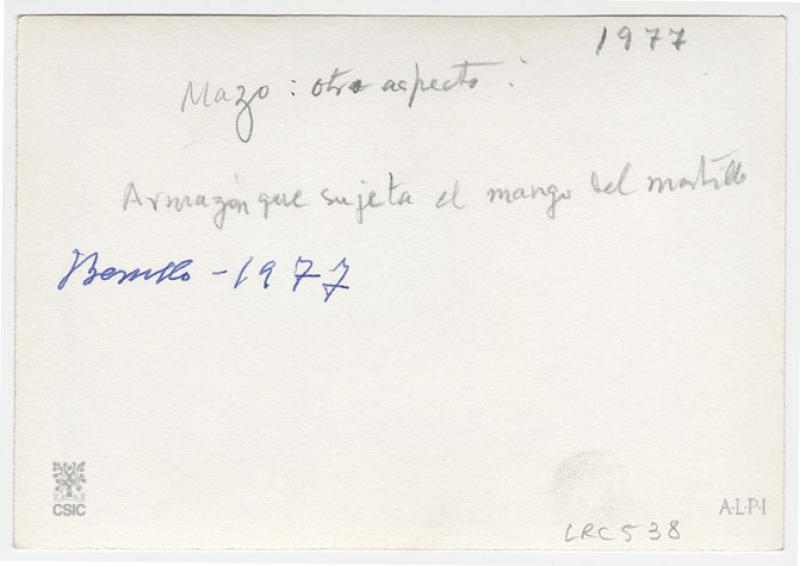 1977
Mazo: otro aspecto:
Armazón que sujeta el mango del martillo
- 1977
CSIC
A·L·P·I
LRC 538